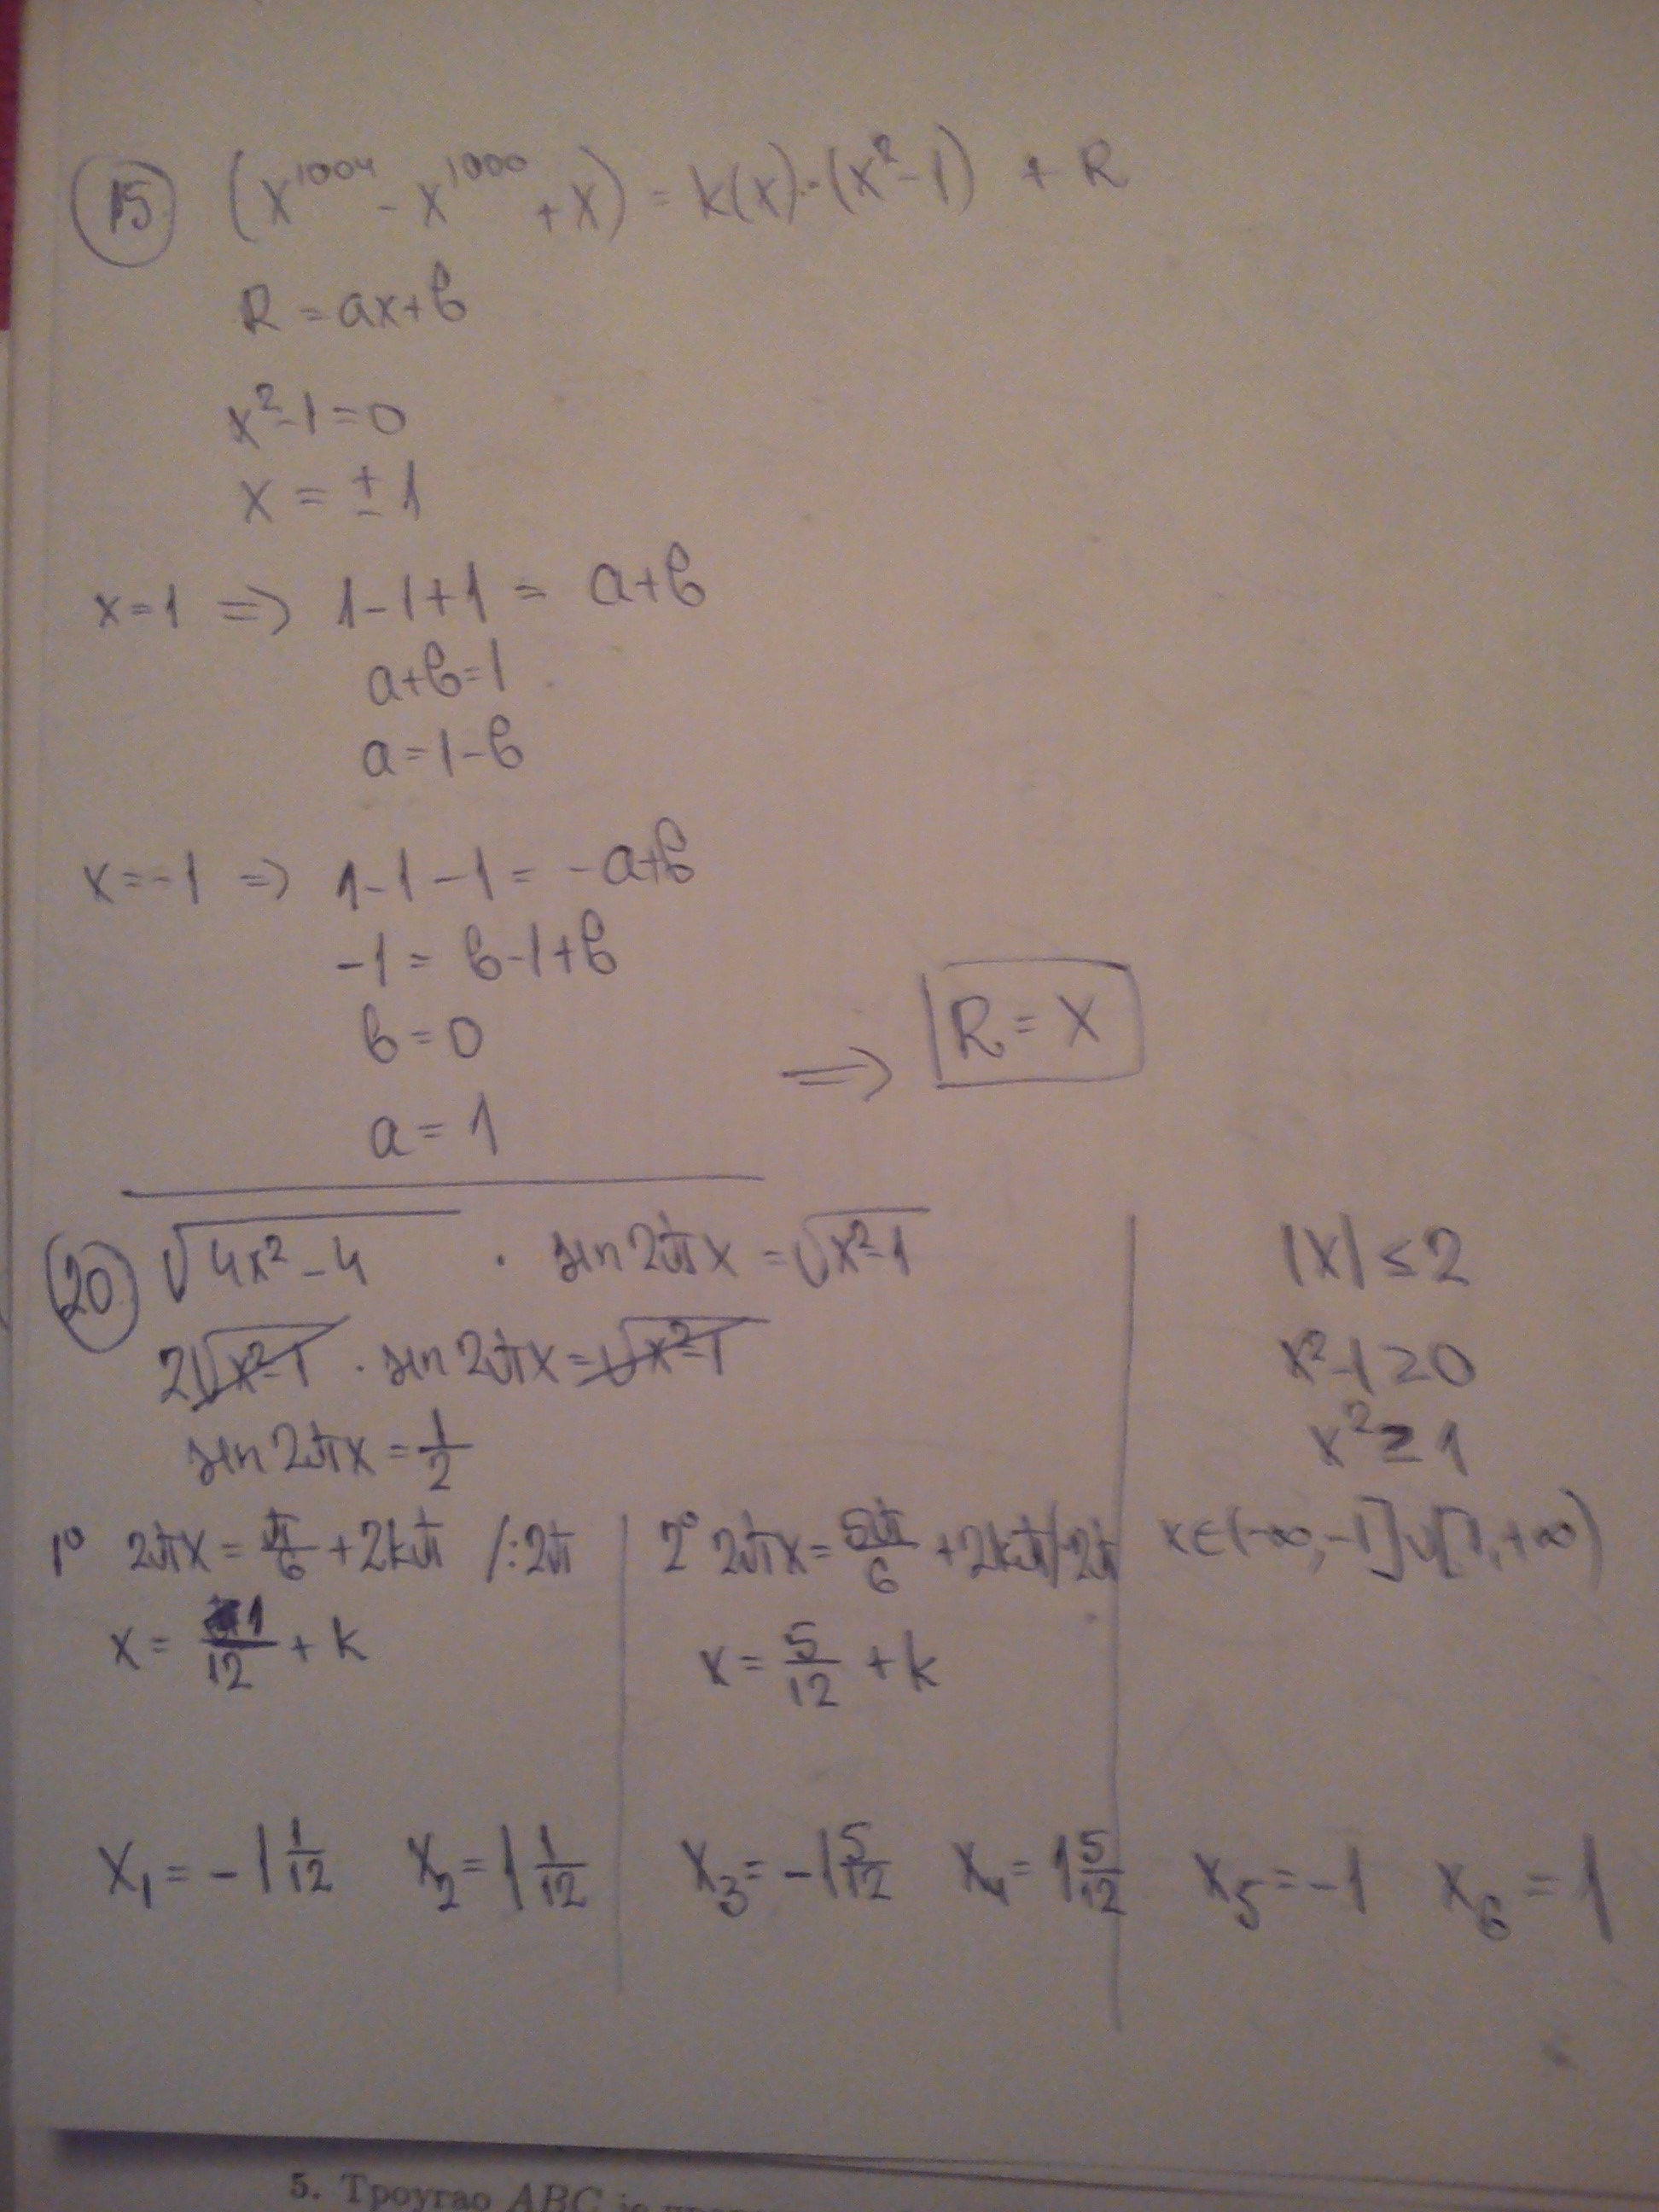 15 (x¹⁰⁰⁴ - x¹⁰⁰⁰ + x) = k(x)·(x²-1) + R
R = ax+b
x²-1=0
x = ±1
x=1 => 1-1+1 = a+b
a+b=1
a=1-b
x=-1 => 1-1-1 = -a+b
-1 = b-1+b
b=0
a=1
=> R=x
20 √(4x²-4) · sin2πx = √(x²-1)
2√(x²-1) · sin2πx = √(x²-1)
sin2πx = 1/2
1° 2πx = π/6 + 2kπ /:2π
x = 1/12 + k
2° 2πx = 5π/6 + 2kπ /:2π
x = 5/12 + k
|x| ≤ 2
x²-1≥0
x² ≥ 1
x∈(-∞,-1]∪[1,+∞)
x₁ = -1 1/12 x₂ = 1 1/12 x₃ = -1 5/12 x₄ = 1 5/12 x₅ = -1 x₆ = 1
5. Троугао ABC је